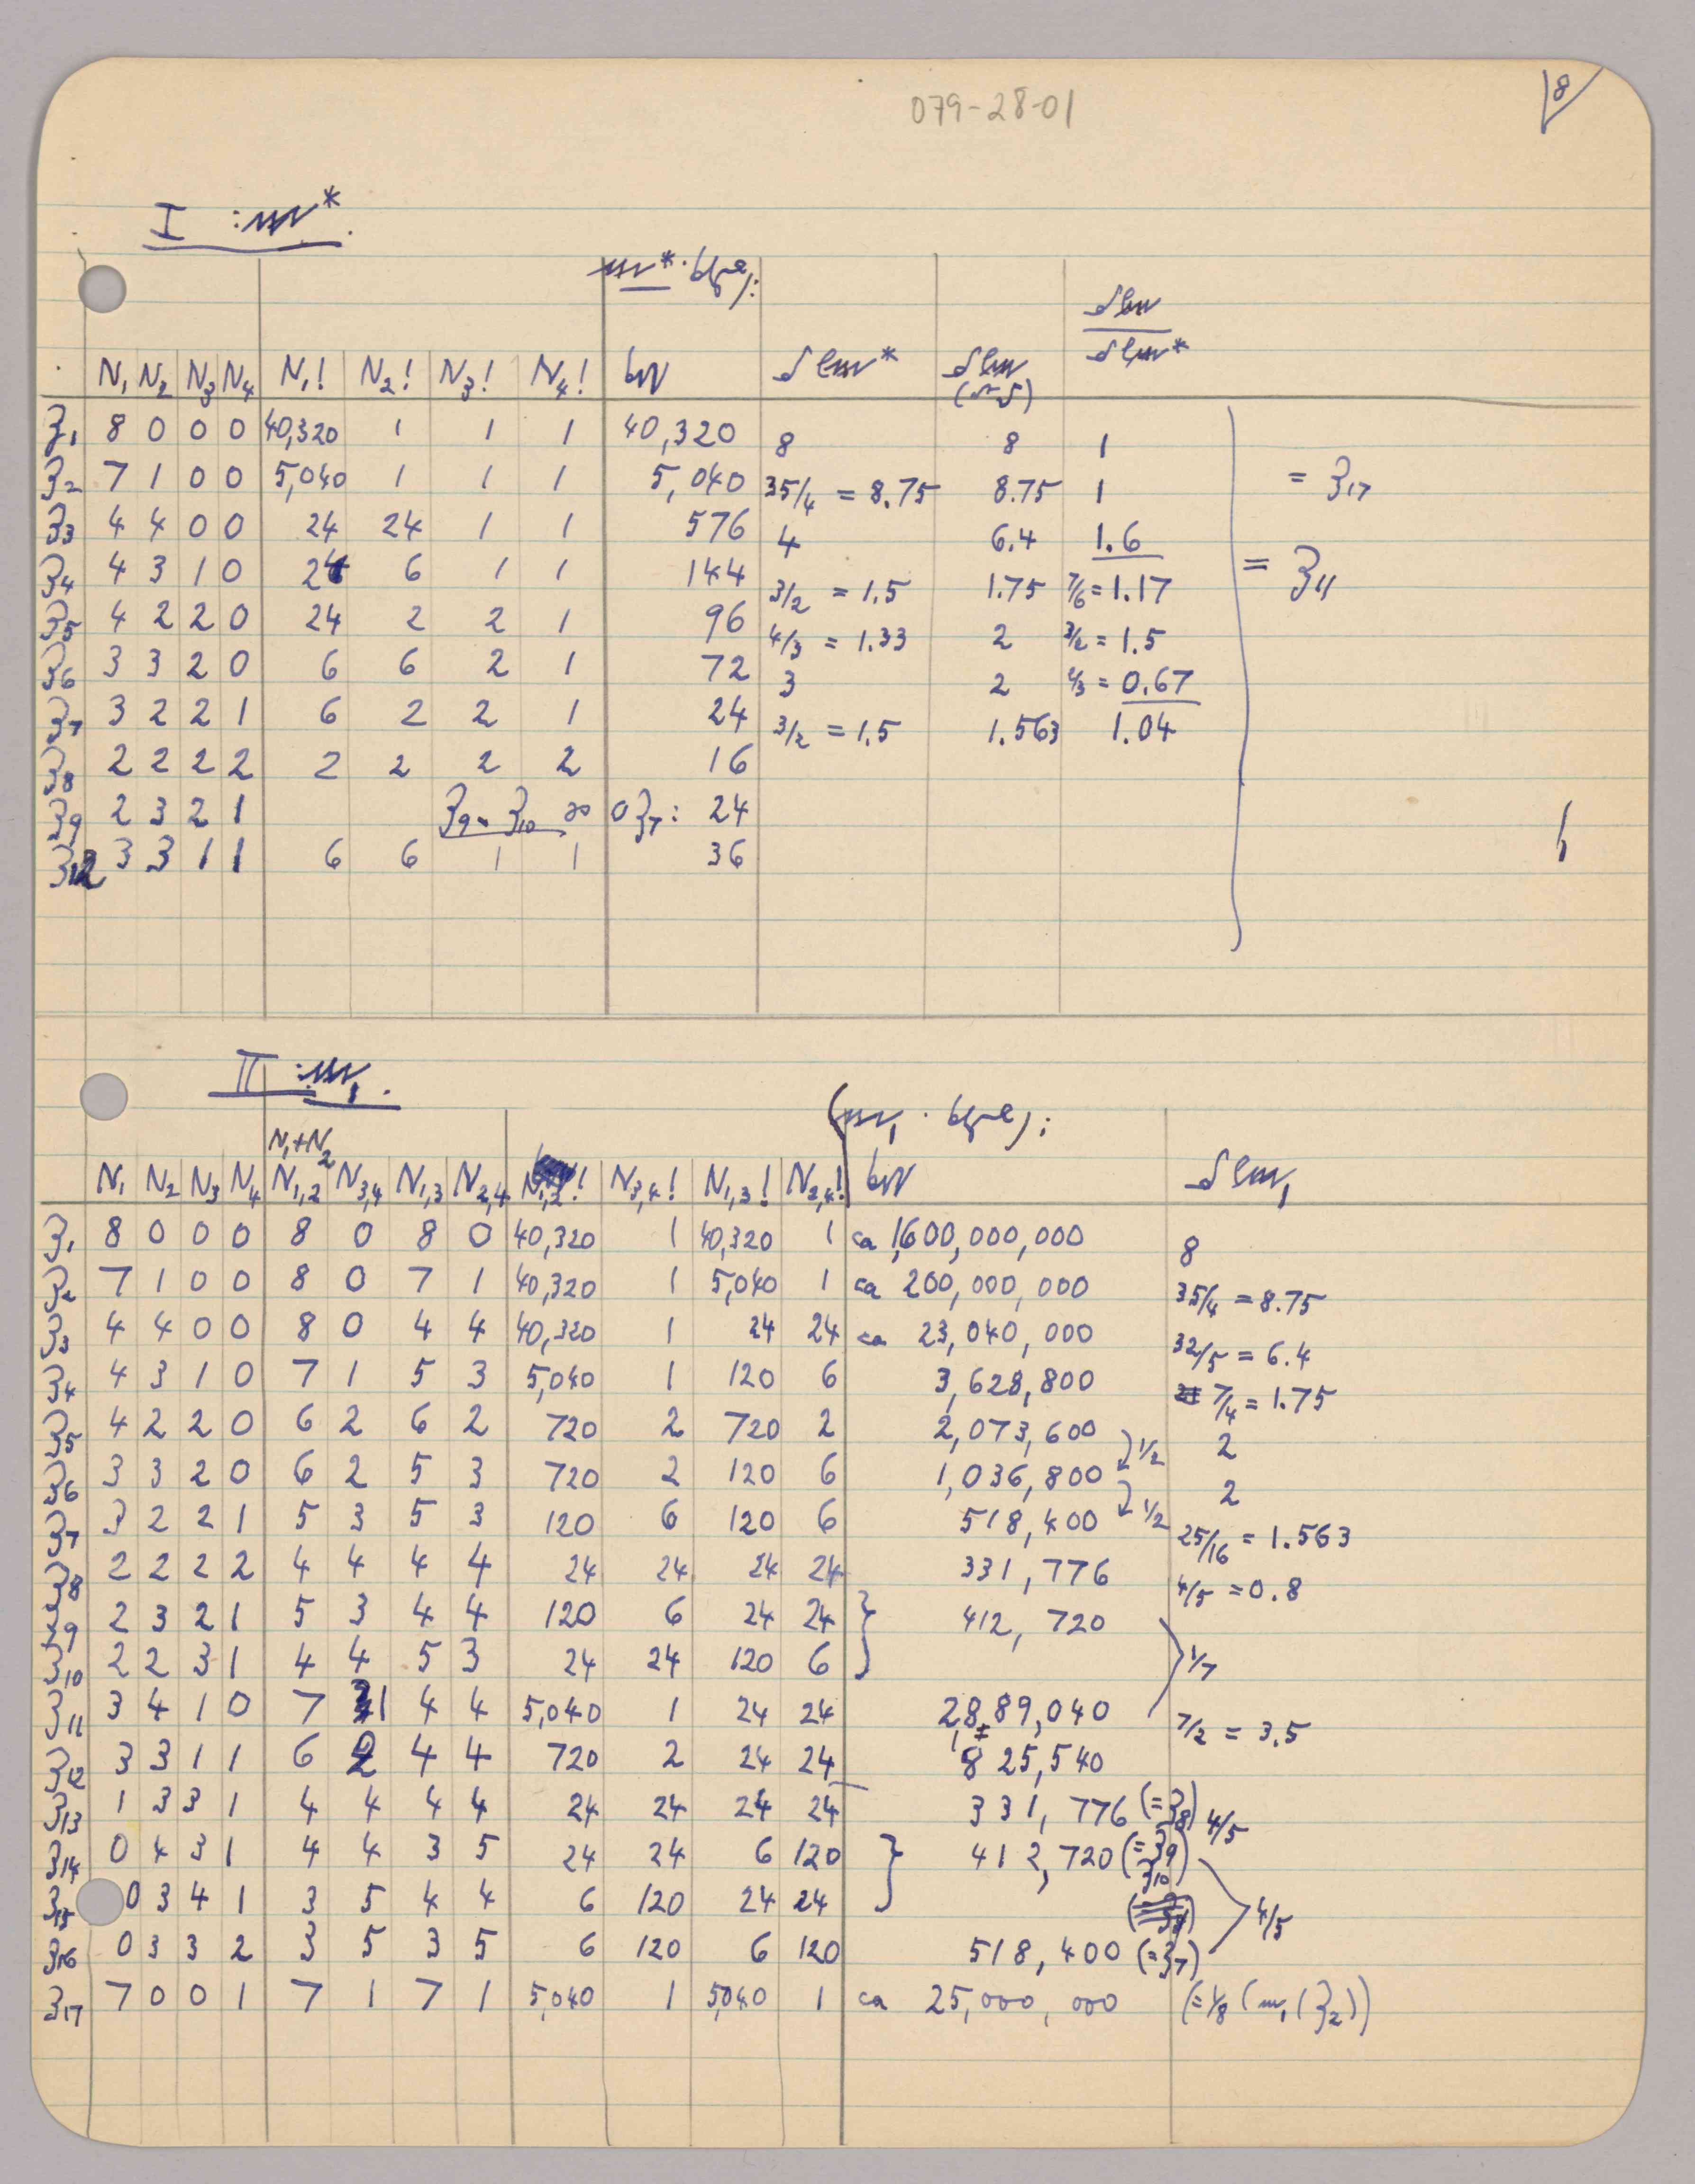 079-28-01
8
I : m*
N₁ N₂ N₃ N₄ N₁! N₂! N₃! N₄!
ʒ₁ 8 0 0 0 40,320 1 1 1 40,320 8 8 1
ʒ₂ 7 1 0 0 5,040 1 1 1 5,040 35/4 = 8.75 8.75 1 = ʒ₁₇
ʒ₃ 4 4 0 0 24 24 1 1 576 4 6.4 1.6
ʒ₄ 4 3 1 0 24 6 1 1 144 3/2 = 1.5 1.75 7/6 = 1.17 = ʒ₁₁
ʒ₅ 4 2 2 0 24 2 2 1 96 4/3 = 1.33 2 3/2 = 1.5
ʒ₆ 3 3 2 0 6 6 2 1 72 3 2 2/3 = 0.67
ʒ₇ 3 2 2 1 6 2 2 1 24 3/2 = 1.5 1.563 1.04
ʒ₈ 2 2 2 2 2 2 2 2 16
ʒ₉ 2 3 2 1 ʒ₉ ʒ₁₀ ʒ₇: 24
ʒ₁₂ 3 3 1 1 6 6 1 1 36
II : m₁.
N₁+N₂
N₁ N₂ N₃ N₄ N₁,₂ N₃,₄ N₁,₃ N₂,₄ N₁,₂! N₃,₄! N₁,₃! N₂,₄!
ʒ₁ 8 0 0 0 8 0 8 0 40,320 1 40,320 1 ca 1,600,000,000 8
ʒ₂ 7 1 0 0 8 0 7 1 40,320 1 5,040 1 ca 200,000,000 35/4 = 8.75
ʒ₃ 4 4 0 0 8 0 4 4 40,320 1 24 24 ca 23,040,000 32/5 = 6.4
ʒ₄ 4 3 1 0 7 1 5 3 5,040 1 120 6 3,628,800 7/4 = 1.75
ʒ₅ 4 2 2 0 6 2 6 2 720 2 720 2 2,073,600 1/2 2
ʒ₆ 3 3 2 0 6 2 5 3 720 2 120 6 1,036,800 1/2 2
ʒ₇ 3 2 2 1 5 3 5 3 120 6 120 6 518,400 25/16 = 1.563
ʒ₈ 2 2 2 2 4 4 4 4 24 24 24 24 331,776 4/5 = 0.8
ʒ₉ 2 3 2 1 5 3 4 4 120 6 24 24 } 412,720
ʒ₁₀ 2 2 3 1 4 4 5 3 24 24 120 6 1/7
ʒ₁₁ 3 4 1 0 7 1 4 4 5,040 1 24 24 2,889,040 7/2 = 3.5
ʒ₁₂ 3 3 1 1 6 2 4 4 720 2 24 24 825,540
ʒ₁₃ 1 3 3 1 4 4 4 4 24 24 24 24 331,776 (=ʒ₈) 4/5
ʒ₁₄ 0 4 3 1 4 4 3 5 24 24 6 120 } 412,720 (=ʒ₉ ʒ₁₀)
ʒ₁₅ 0 3 4 1 3 5 4 4 6 120 24 24 4/5
ʒ₁₆ 0 3 3 2 3 5 3 5 6 120 6 120 518,400 (=ʒ₇)
ʒ₁₇ 7 0 0 1 7 1 7 1 5,040 1 5,040 1 ca 25,000,000 (=1/8 (m₁(ʒ₂))